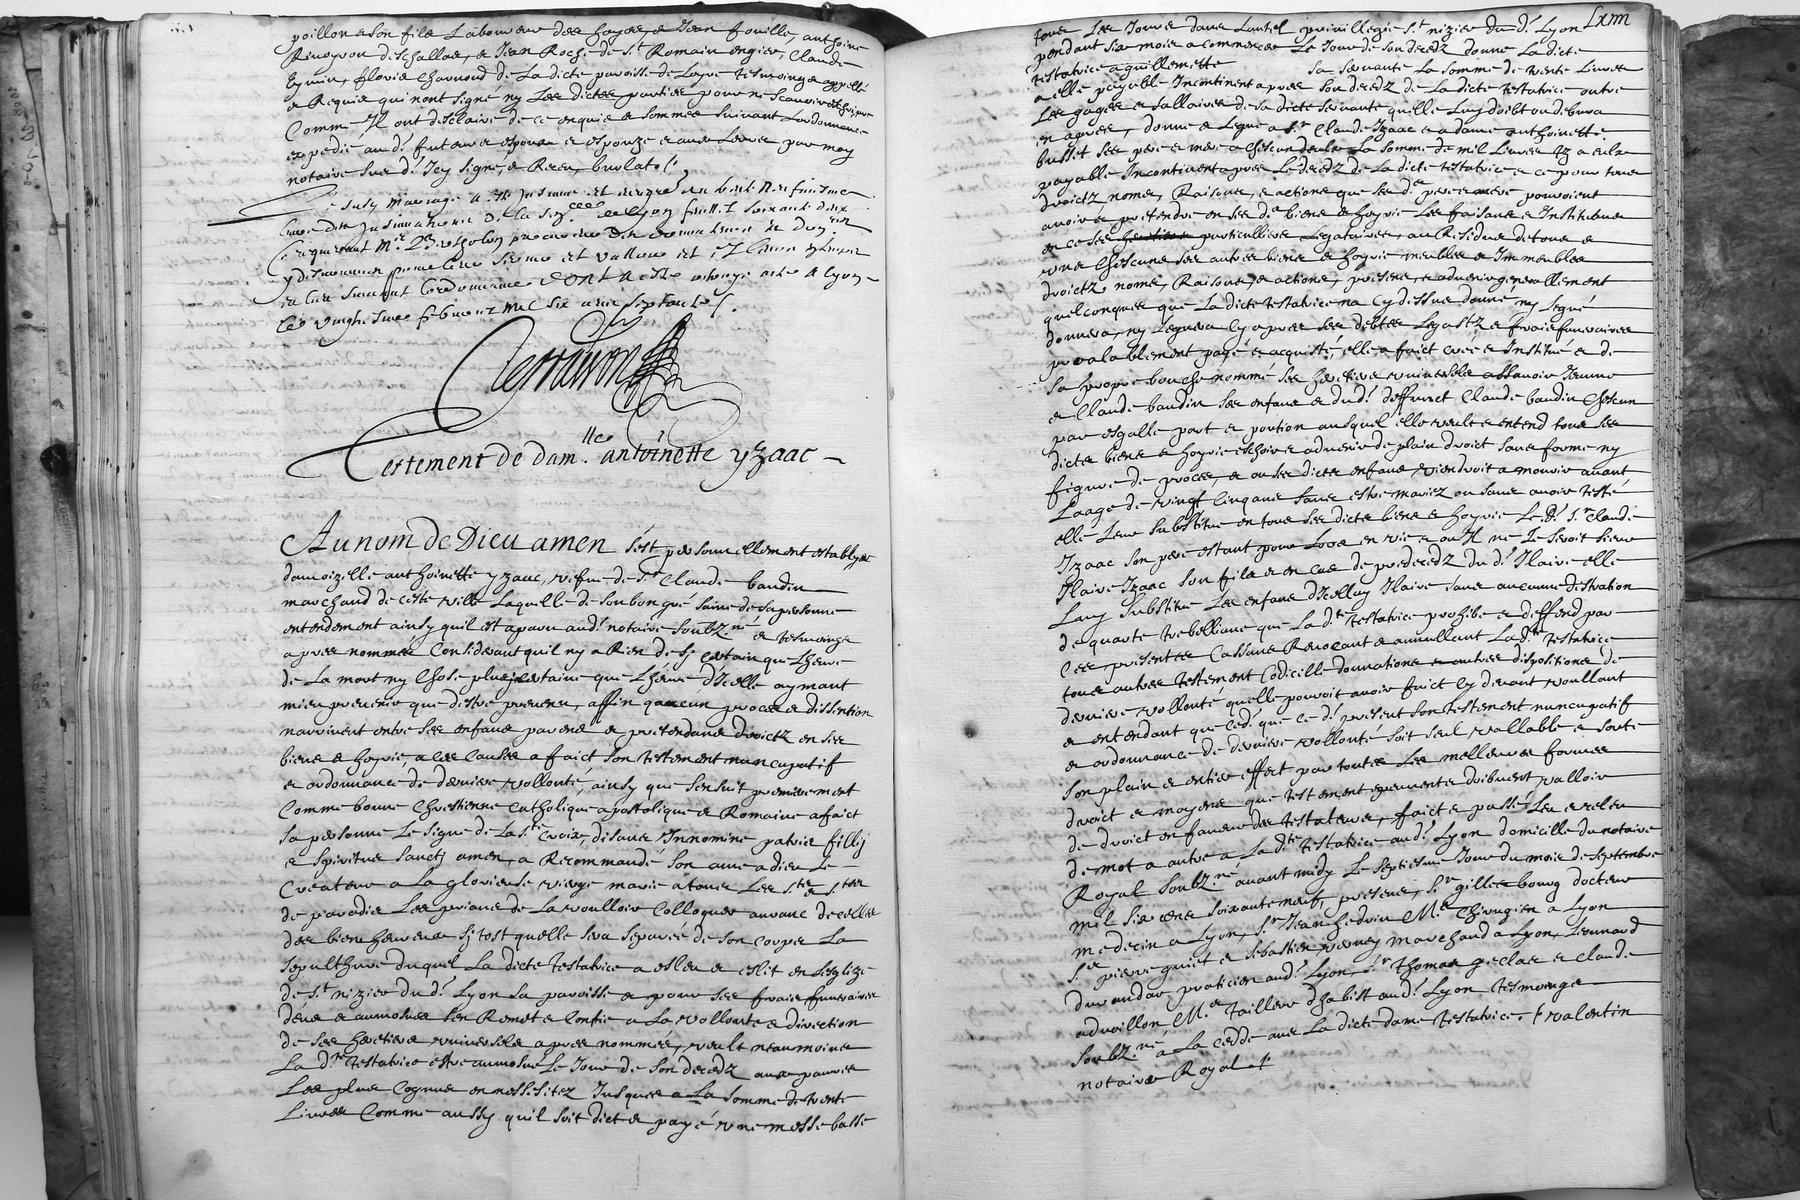 poillon & son filz laboureur des hayes, & Jean fouille, anthoine
Rinoyron de Challas, & Jean Roche de St Romain en gier, Claude
Eymin, florie Charnond de la dicte paroisse de Loyre tesmoingz appellé
& Requis qui nont signé ny les dictes parties pour ne scavoir escripre
Comme Ilz ont desclairé de ce enquis & sommés suivant Lordonnance
expedié aud. futeur espoux & espouze & aux Leurs par moy
notaire sus d. Icy signé, & Receu, burlat o
Le susd mariage a este Insinué et enregre au huitie
livre des Insinuations de la senee de Lyon feuillet soixante deux
Ce requerant Mre procureur des
y dit et et
en lieu suivant Lordonnance DONT A este octroyé acte A Lyon
Ce vingt febvrier Mil six cens septante
Terrasson
Testement de damlle antoinette yzaac
Au nom de Dieu amen sest personnellement establye
damoizelle anthoinette yzaac, vefve de Sr Claude baudin
marchand de ceste ville laquelle de son bon gré saine de sa personne
entendement ainsy quil est aparu aud. notaire soubzné & tesmoingz
apres nommés Considerant quil ny a Rien de sy certain que Lheure
de La mort ny chose plus incertaine que Lheure dIcelle aymant
mieux prevenir que destre prevenue, affin quaucun proces & dissention
narrivent entre ses enfans parens & pretendans droictz en ses
biens & hoyrie, a ces Causes a faict son testement nuncupatif
& ordonnance de derniere vollonté, ainsy que sensuit premierement
Comme bonne Chrestienne Catholique apostolique & Romaine a faict
sa personne Le signe de la Ste Croix, disant In nomine patris fillij
& spiritus sancty amen, a Recommandé son ame a dieu Le
Createur a La glorieuse vierge marie a tous Les Sts & Stes
de paradis Les priant de La voulloir Colloquer au rang de celles
des bien heureux sy tost quelle sera separée de son corps La
sepulthure duquel La dicte testatrice a esleu & eslit en lesglize
de St nizier dud. Lyon sa paroisse & pour ses fraix funeraires
dons & aumosnes sen Remet & Confie a La vollonté & direction
de ses heretiers universels apres nommés, veult neaumoins
La d. testatrice estre aumosné Le Jour de son decedz aux pauvres
Les plus Cognus en nessessitez Jusques a La somme de trente
Livres Comme aussy quil soit dict & payé une messe basse
Lxiiii
tous Les Jours dans Lautel privillegié St nizier du d. Lyon
pendant six mois a commencer Le Jour de son decedz donne La dicte
testatrice a guillemette sa servante La somme de trente Livres
a elle payable Incontinent apres son decedz de La dicte testatrice outre
Les gages & sallaires de sa dicte servante quelle Luy doibt ou debvra
en apres, donne & Legue a Sr Claude Izaac & a dame anthoinette
bussit ses pere & mere a chescun deulx La somme de mil Livres tz a eulx
payable Incontinent apres Le decedz de La dicte testatrice & ce pour tous
droictz, noms, Raisons, & actions que ses d. pere & mere pouroient
avoir & pretendre en ses d. biens & hoyrie Les faisant & Instituant
en ce ses heretiers particulliers Legataires, au Residue de tous &
uns chescuns ses autres biens & hoyrie meubles & Immeubles
droictz noms, Raisons, & actions, presens, & advenir generallement
quelconques que La dicte testatrice na Cy dessus donné, ny Legué
donnera, ny Leguera Cy apres ses debtes Legastz & fraix funeraires
prealablement payé & acquisté, elle a faict créé & Institué & de
sa propre bouche nommé ses heretiers universels assavoir Jeanne
& Claude baudin ses enfans & dud. deffunct Claude baudin Chescun
par esgalle part & portion ausquel elle veult & entend tous ses
dicts biens & hoyrie eschoir & advenir de plain droict sans forme ny
figure de proces, & ou ses dicts enfans, viendroit a mourir avant
Laage de vingt Cinq ans sans estre mariez ou sans avoir testé
elle Leur substitue en tous ses dicts biens & hoyrie Le d. Sr Claude
Izaac son pere estant pour Lors en vie & ou Il ne Le seroit sieur
Ilaire Izaac son filz & en cas de predecedz du d. Ilaire elle
Luy substitue Les enfans dIcelluy Ilaire sans aucune distration
de quarte trebellianne que La d. testatrice prohibe & deffend par
Ces presentes Cassant Revocant & annullant La dte testatrice
tous autres testement Codicille donnations & autres dispositions de
derniere vollonté quelle pouroit avoir faict Cy devant voullant
& entendant que ced. que ce d. present son testement nuncupatif
& ordonnance de derniere vollonté soit seul vallable & sorte
son plain & entier effect par toutes Les mellieures formes
droict & moyens que testement peuvent & doibvent valloir
de droict en faveur des testateurs, faict & passé Leu & releu
de mot a autre a La dte testatrice aud. Lyon domicille du notaire
Royal soubzné avant midy Le septiesme Jour du mois de septembre
mil six cens soixante neuf, presens, Sr gilles bourg docteur
medecin a Lyon, Sr Jean hedrin Me Chirugien a Lyon
Sr pierre guiet & sebastien verney marchand a Lyon, Leonnard
durandas praticien aud. Lyon, Sr thomas & claude
advoillon Me tailleur dhabist aud. Lyon tesmoings
soubzné a La cedde avec La dicte dame testatrice. valentin
notaire Royal